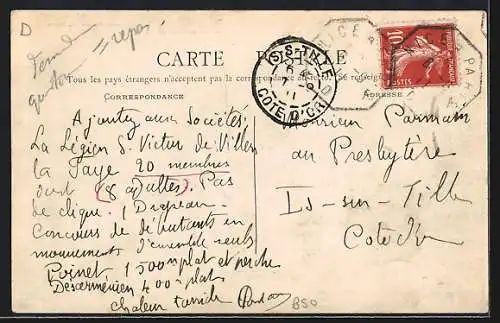 D
CARTE POSTALE
Tous les pays étrangers n'acceptent pas la correspondance au recto. Se renseigner
CORRESPONDANCE
ADRESSE
10
IS-S-TILLE
COTE D'OR
Ajoutez aux Sociétés,
La Légion S. Victor de Villers
la Faye 20 membres
dont (8 adultes). Pas
de clique. 1 Drapeau.
Concours de débutants en
mouvements d'ensemble seuls
Poinet 1500m plat et perche
Desserménien 400m plat
chaleur torride
B50
Monsieur Parmain
au Presbytère
Is-sur-Tille
Cote d'Or